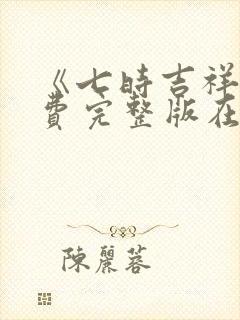 《七時吉祥
費完整版在
陳麗蓉